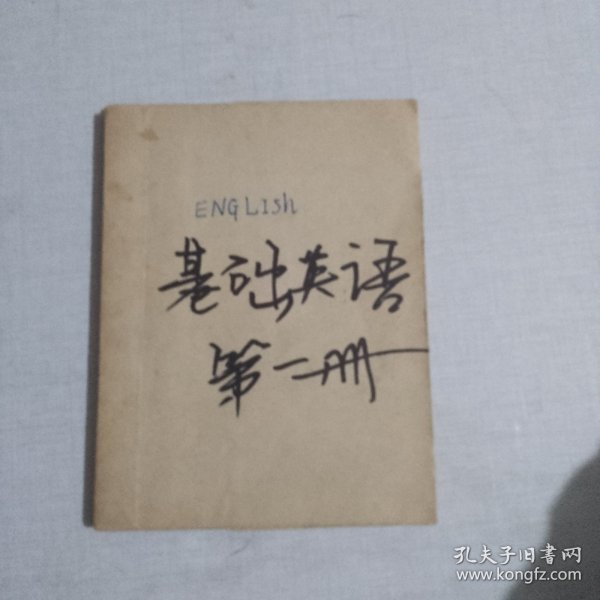 ENGLISh
基础英语
第一册
孔夫子旧书网
www.kongfz.com